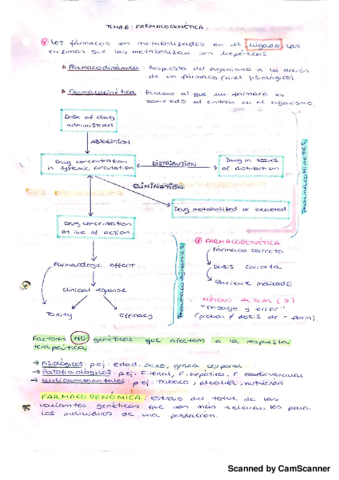 TEMA 6: FARMACOGENÉTICA.
Los fármacos son metabolizados en el hígado, las
enzimas que los metabolizan son hepáticas
Farmacodinámica: Respuesta del organismo a la acción
de un fármaco (nivel fisiológico)
Farmacocinética: Proceso al que un fármaco es
sometido al entrar en el organismo
Dose of drug
administered
ABSORTION
Drug concentration
in systemic circulation
DISTRIBUTION
Drug in tissues
of distribution
ELIMINATION
Drug metabolized or excreted
Drug concentration
at site of action
FARMACOGENÉTICA
Fármaco correcto
Farmacologic effect
Dosis correcta
Clinical response
Paciente indicado
MÉTODO ACTUAL
"ensayo y error"
(probar ≠ dosis de farm)
Toxicity
efficacy
Factores NO genéticos que afectan a la respuesta
terapéutica:
→ Fisiológicos: p.ej. edad, sexo, grasa corporal
→ Patofisiológicos: p.ej. F. renal, F. hepática, F. cardiovascular
→ Medioambientales: p.ej. Tabaco, alcohol, nutrición
FARMACOGENÓMICA: Estudio del total de las
variantes genéticas que son más relevantes para
los individuos de una población.
Scanned by CamScanner